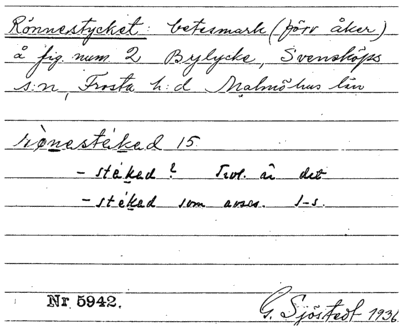 Rönnestycket: betesmark (förv åker)
å fig. num. 2 Bylycke, Svensköps
s:n, Frosta h:d Malmöhus län
rönestéked 15.
- stékad? Trol. är det
- stékad som avses. I-s.
Nr 5942.
G. Sjöstedt 1936